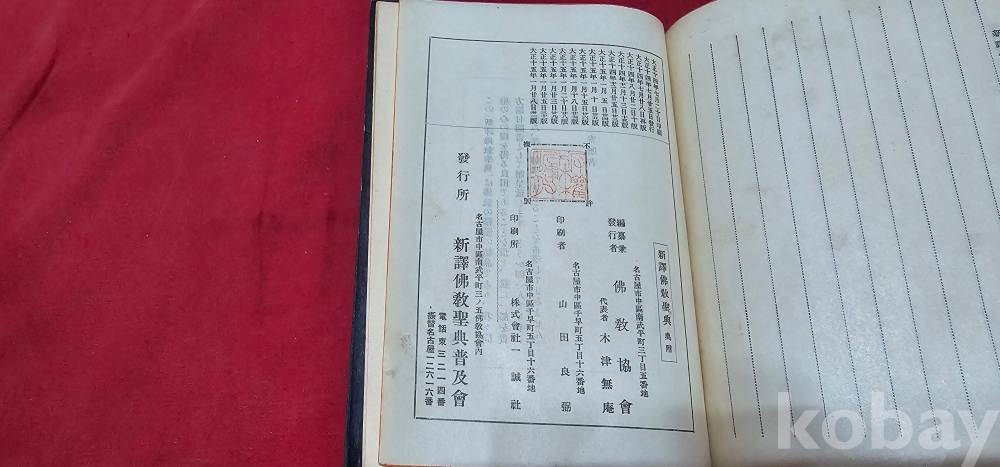 新譯佛敎聖典 奧附
大正十四年七月廿五日發行
大正十四年七月廿八日再版
大正十五年一月五日
大正十五年一月十日
大正十五年一月十五日
大正十五年一月十八日
大正十五年一月二十日
大正十五年一月廿三日
大正十五年一月廿五日
大正十五年一月廿八日
不許
複製
編纂兼
發行者
名古屋市中區南武平町三丁目五番地
佛敎協會
代表者 木津無庵
印刷者
名古屋市中區千早町五丁目十六番地
山田良弼
印刷所
名古屋市中區千早町五丁目十六番地
株式會社一誠社
發行所
名古屋市中區南武平町三ノ五佛敎協會內
新譯佛敎聖典普及會
電話東三二一四番
振替名古屋一二六一六番
kobay